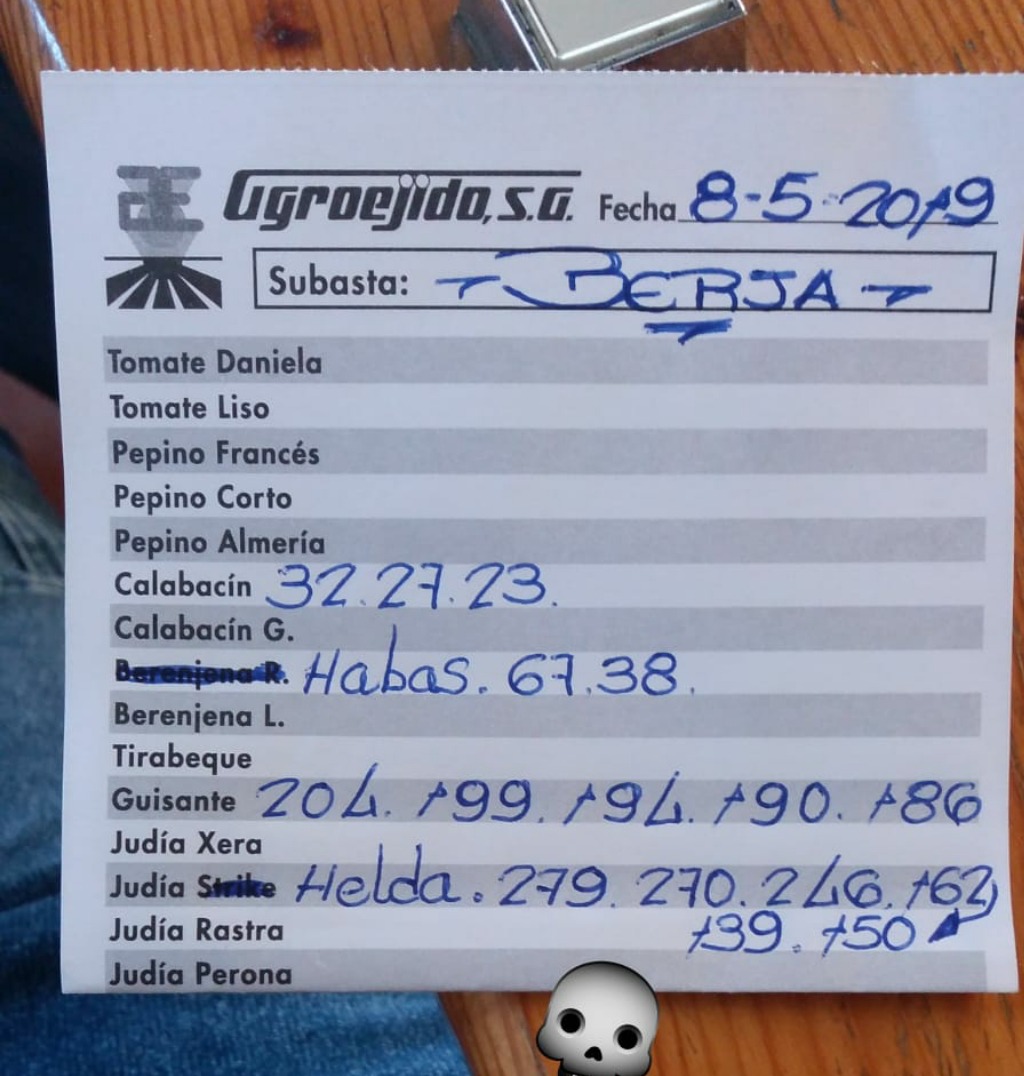 Agroejido, S.A. Fecha 8-5-2019
Subasta: - BERJA -
Tomate Daniela
Tomate Liso
Pepino Francés
Pepino Corto
Pepino Almería
Calabacín 32.27.23.
Calabacín G.
Berenjena R. Habas. 67.38.
Berenjena L.
Tirabeque
Guisante 204. 199. 194. 190. 186
Judía Xera
Judía Strike Helda. 279. 270. 246. 162
Judía Rastra 139. 150
Judía Perona